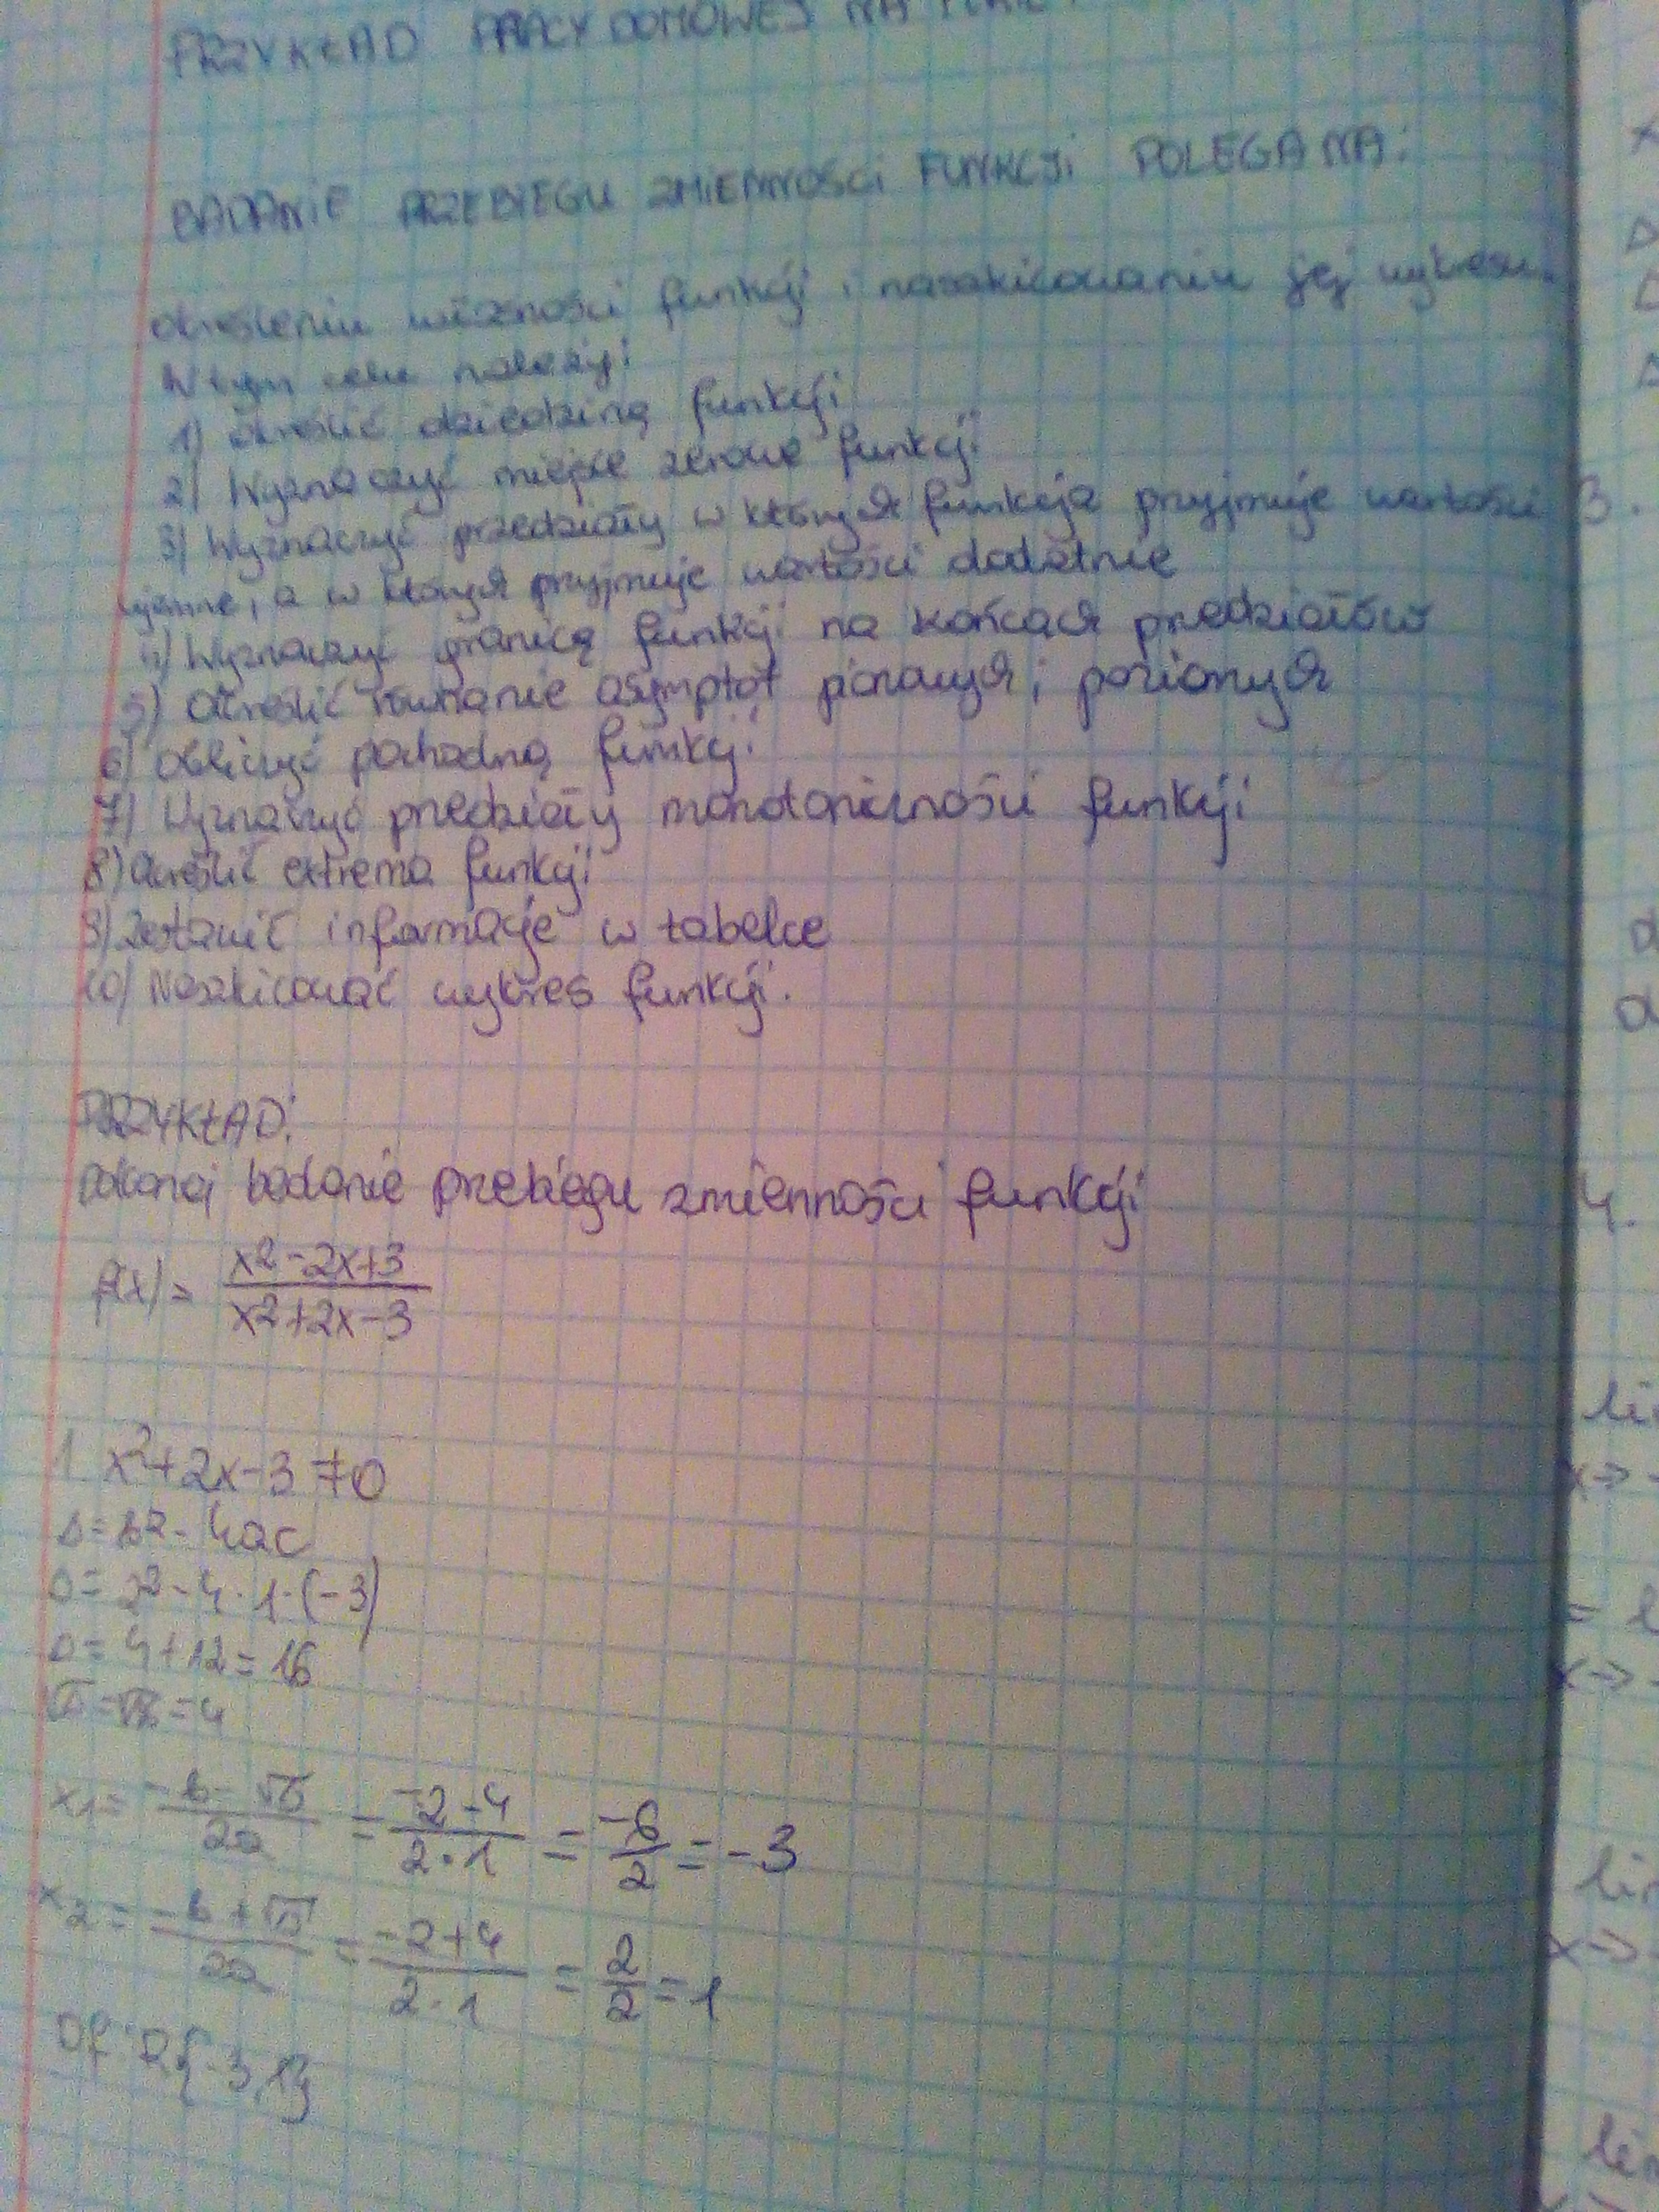 PRZYKŁAD PRACY DOMOWEJ NA
BADANIE PRZEBIEGU ZMIENNOŚCI FUNKCJI POLEGA NA:
określeniu własności funkcji i naszkicowaniu jej wykresu.
W tym celu należy:
1) Określić dziedzinę funkcji
2) Wyznaczyć miejsce zerowe funkcji
3) Wyznaczyć przedziały w których funkcja przyjmuje wartości
ujemne, a w których przyjmuje wartości dodatnie
4) Wyznaczyć granicę funkcji na końcach przedziałów
5) Określić równanie asymptot pionowych i poziomych
6) Obliczyć pochodną funkcji
7) Wyznaczyć przedziały monotoniczności funkcji
8) Określić extrema funkcji
9) Zestawić informacje w tabelce
10) Naszkicować wykres funkcji.
PRZYKŁAD:
Dokonaj badanie przebiegu zmienności funkcji
f(x) = \frac{x2-2x+3}{x2+2x-3}
1. x²+2x-3≠0
Δ=b2-4ac
Δ=22-4·1·(-3)
Δ=4+12=16
√Δ=√16=4
x1=\frac{-b-√Δ}{2a}=\frac{-2-4}{2·1}=\frac{-6}{2}=-3
x2=\frac{-b+√Δ}{2a}=\frac{-2+4}{2·1}=\frac{2}{2}=1
Df: R\{-3,1}
3.
4.